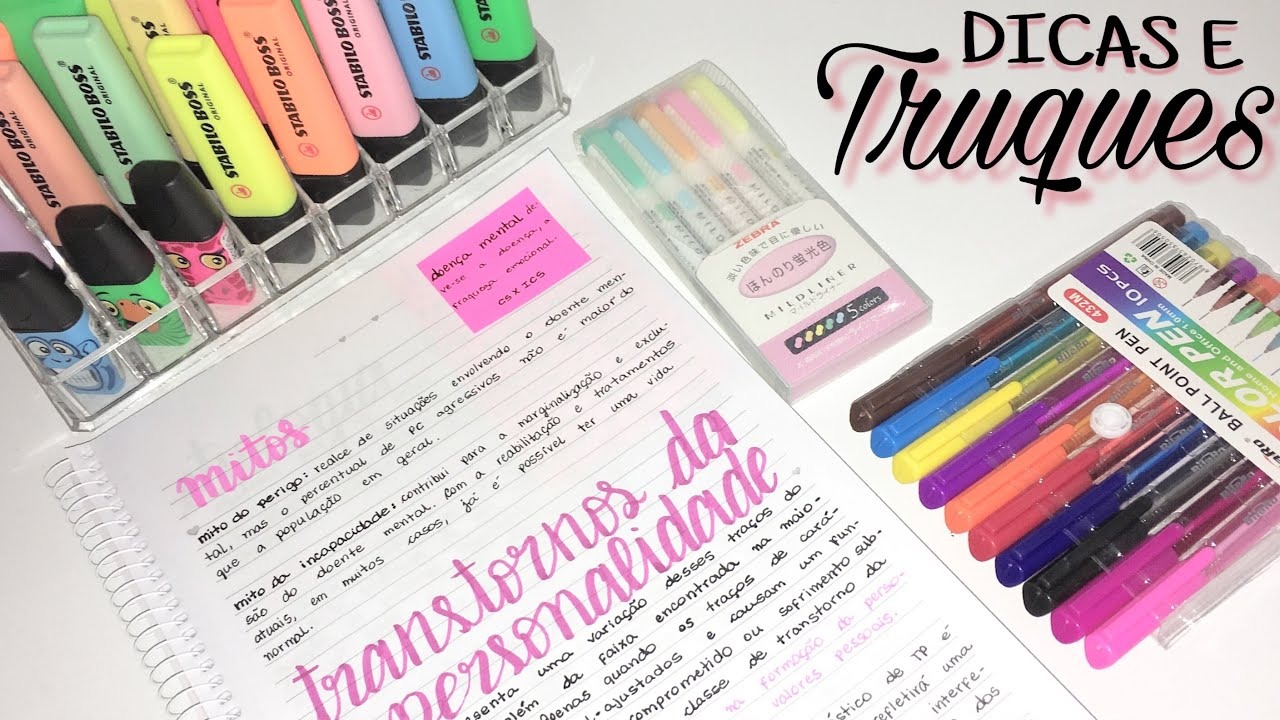 DICAS E
Truques
STABILO BOSS
ORIGINAL
STABILO BOSS
ORIGINAL
STABILO BOSS
ORIGINAL
STABILO BOSS
ORIGINAL
STABILO BOSS
ORIGINAL
STABILO BOSS
STABILO BOSS
ZEBRA
淡い色味で目に優しい
ほんのり蛍光色
MILDLINER
マイルドライナー
5 colors
432M
OR PEN 10PCS
Home and Office 1.0mm
BALL POINT PEN
doença mental de-
ve-se a doença, a
fraqueza emocional.
CS X ICS
mitos
mito do perigo: realce de situações envolvendo o doente men-
tal, mas o percentual de PC agressivos não é maior do
que a população em geral.
mito da incapacidade: contribui para a marginalização e exclu-
são do doente mental. Com a reabilitação e tratamentos
atuais, em muitos casos, já é possível ter uma vida
normal.
transtornos da
personalidade
senta uma variação desses traços
além da faixa encontrada na maio
doenas quando os traços de cará-
-ajustados e causam um fun-
comprometido ou sofrimento sub-
classe de transtorno da
na formação da perso-
valores pessoais.
ístico de TP é
refletirá uma
interpe-
dos